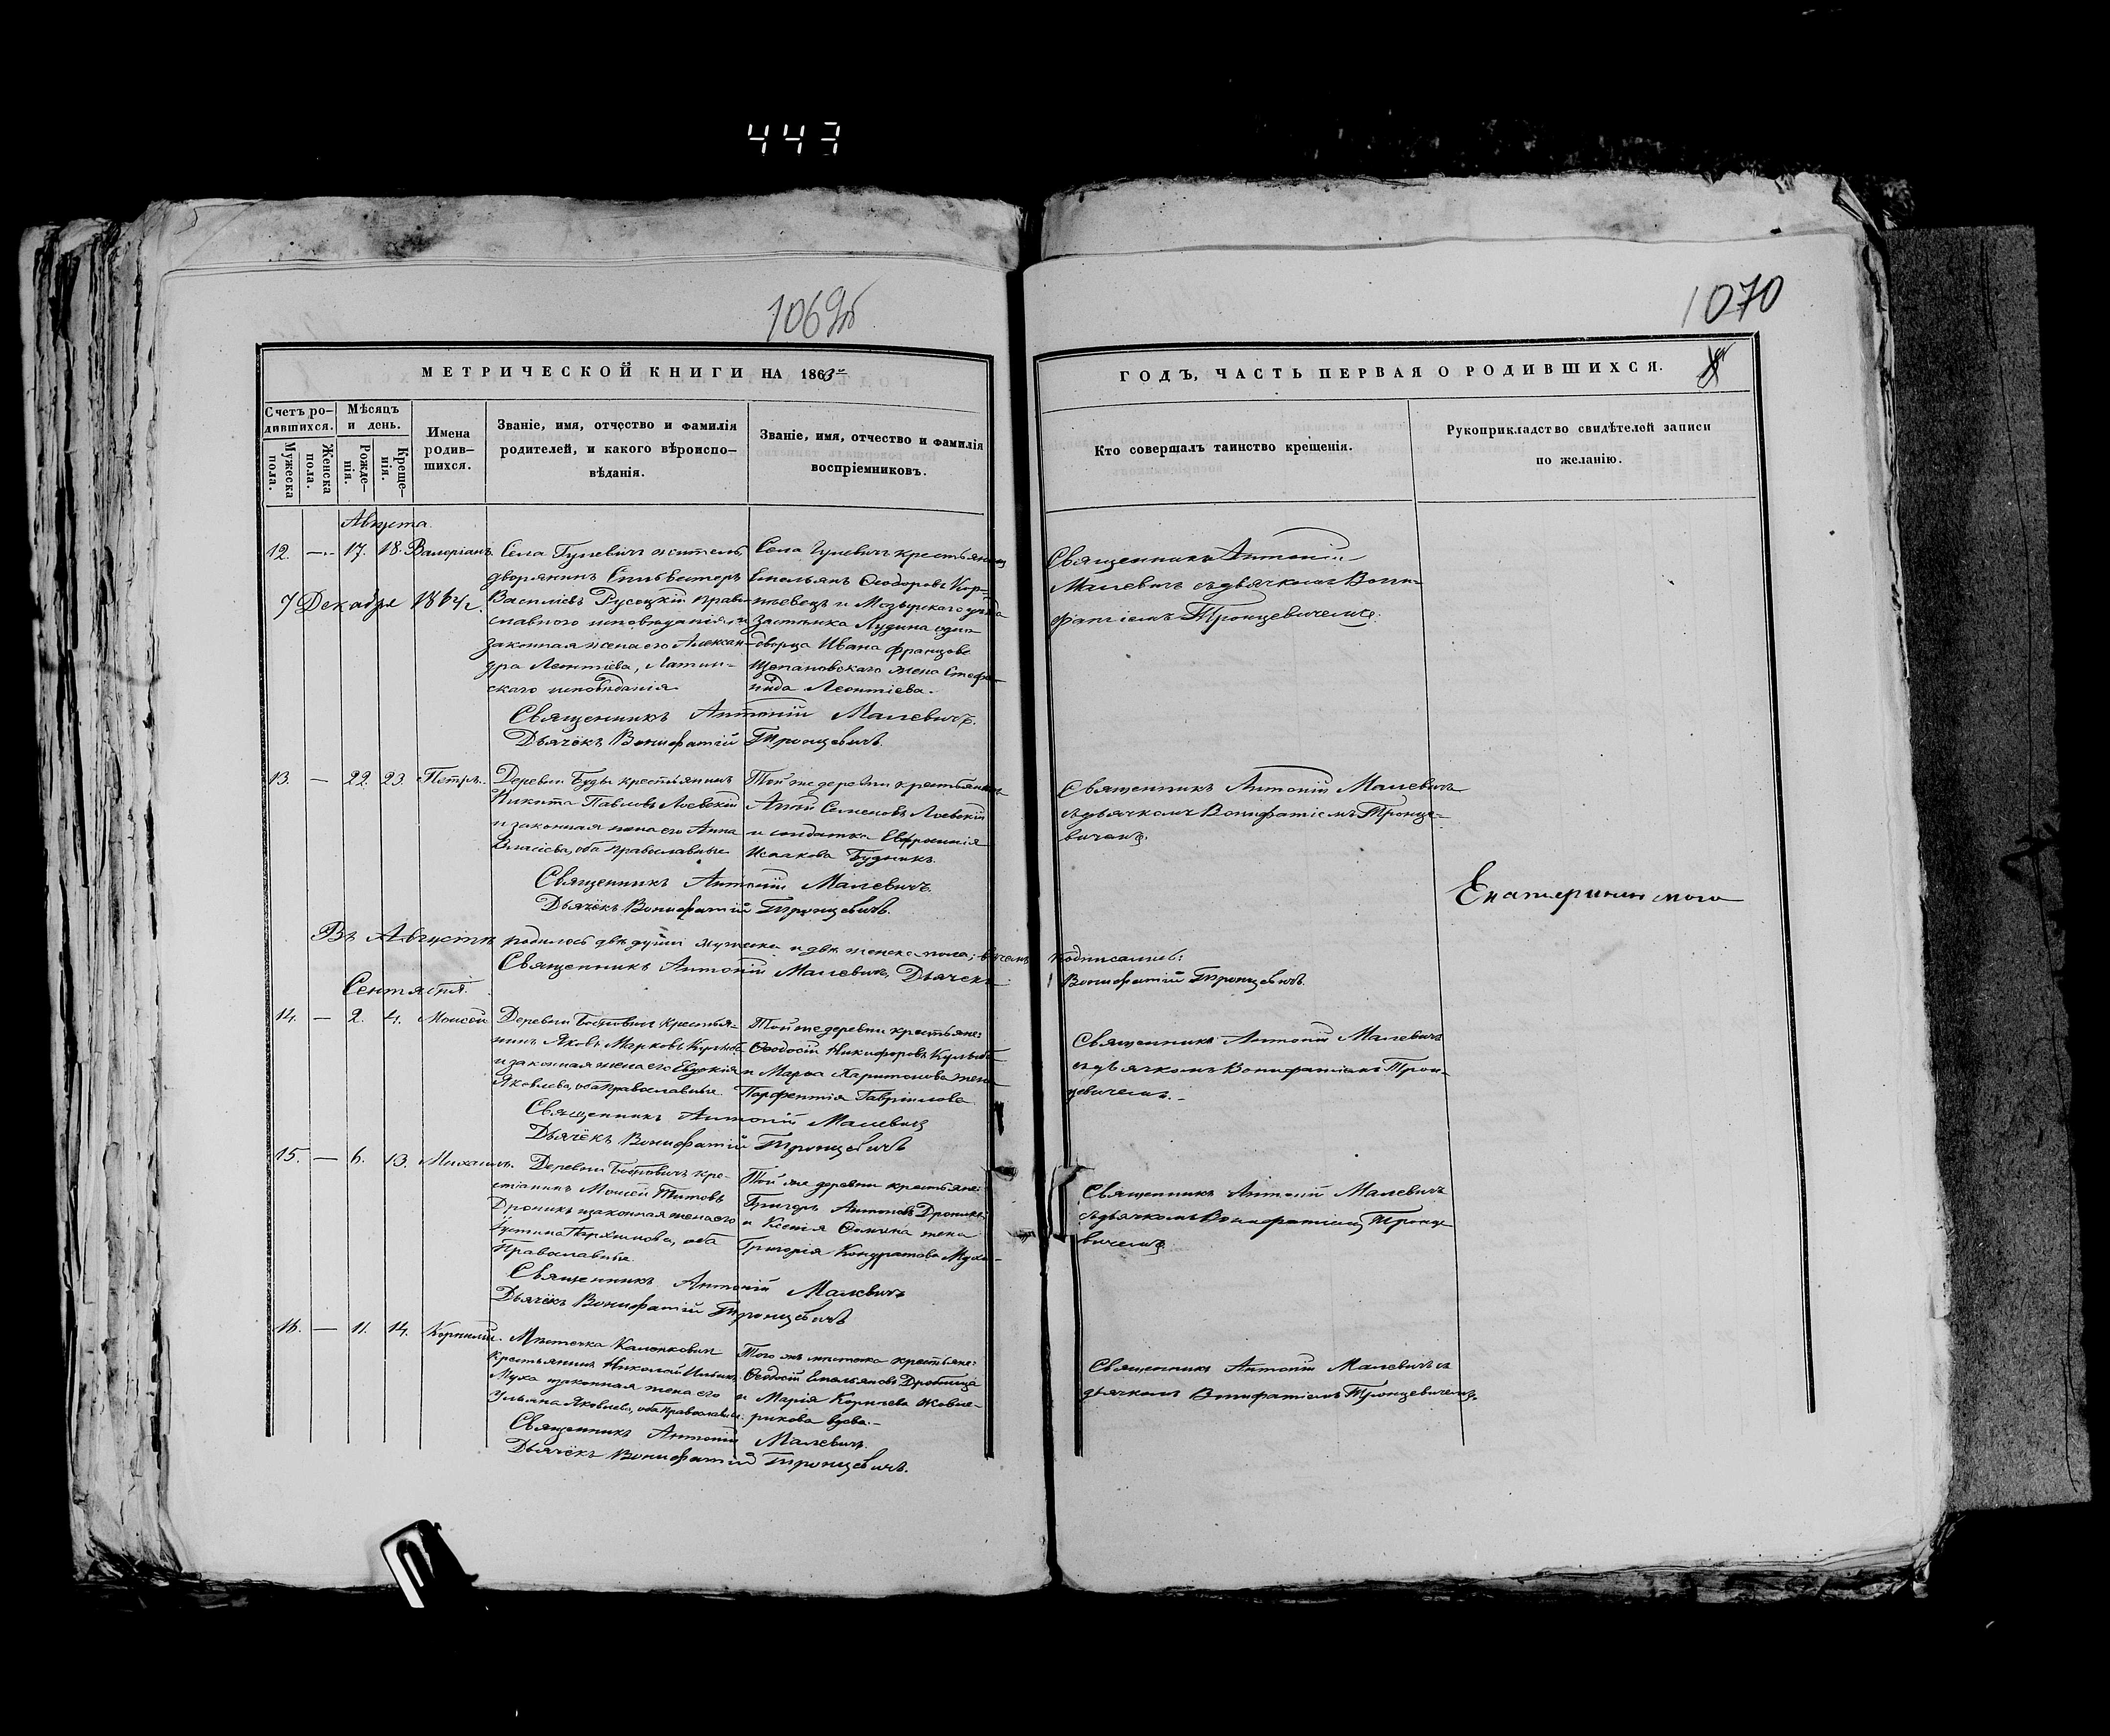 443
1069об
1070
МЕТРИЧЕСКОЙ КНИГИ НА 1863
ГОДЪ, ЧАСТЬ ПЕРВАЯ О РОДИВШИХСЯ.
Счетъ ро-
дившихся.
Мужеска
пола.
Женска
пола.
Мѣсяцъ
и день.
Рожде-
нія.
Креще-
нія.
Имена
родив-
шихся.
Званіе, имя, отчество и фамилія
родителей, и какого вѣроиспо-
вѣданія.
Званіе, имя, отчество и фамилія
воспріемниковъ.
Кто совершалъ таинство крещенія.
Рукоприкладство свидѣтелей записи
по желанію.
Августа
12. — 17. 18. Валеріанъ
7 Декабря 1864 г.
Села Гулевичъ житель
дворянинъ Сильвестеръ
Василіевъ Русецкій право-
славного исповѣданія, и
законная жена его Алексан-
дра Леонтіева, Латин-
скаго исповѣданія
Села Гулевичъ крестьянинъ
Емельянъ Ѳеодоровъ
и Мозырскаго уѣзда
застѣнка одно
дворца Ивана Францова
Щепановскаго жена Стефа-
нида Леонтіева.
Священникъ Антоній Малевичъ.
Дьячёкъ Вонифатій Тронцевичъ.
Священникъ Антоній
Малевичъ съ дьячкомъ Вони-
фатіемъ Тронцевичемъ.
13. — 22. 23. Петръ.
Деревни Буды крестьянинъ
Никита Павловъ Лоевскій
и законная жена его Анна
оба православные
Той же деревни крестьянинъ
Семеновъ Лоевскій
и солдатка Евфросинія
Исакова Будникъ.
Священникъ Антоній Малевичъ
Дьячёкъ Вонифатій Тронцевичъ.
Священникъ Антоній Малевичъ
съ дьячкомъ Вонифатіемъ Тронце-
вичемъ.
Въ Августѣ родилось двѣ души мужеска и двѣ женска пола; въ чемъ подписались:
Священникъ Антоній Малевичъ, Дьячекъ Вонифатій Тронцевичъ.
Сентября.
14. — 2. 4. Моисей
Деревни крестья-
нинъ Яковъ Марковъ
и законная жена его Евдокія
Яковлева, оба православные
Той же деревни крестьяне:
Ѳеодосій Никифоровъ
и Марѳа Харитонова жена
Парфентія Гавріилова
Священникъ Антоній Малевичъ
Дьячёкъ Вонифатій Тронцевичъ
Священникъ Антоній Малевичъ
съ дьячкомъ Вонифатіемъ Трон-
цевичемъ.
15. — 6. 13. Михаилъ.
Деревни кре-
стіанинъ Моисей Титовъ
Дроникъ и законная жена его
оба
Православные
Той же деревни крестьяне:
Григоръ Антоновъ Дроникъ
и Ксенія жена
Григорія Кондратова
Священникъ Антоній Малевичъ
Дьячёкъ Вонифатій Тронцевичъ
Священникъ Антоній Малевичъ
съ дьячкомъ Вонифатіемъ Тронце
вичемъ
16. — 11. 14. Корнилій.
Мѣстечка Каленковичъ
Крестьянинъ Николай Ильинъ
Муха и законная жена его
Ульяна Яковлева, оба православные
Того же мѣстечка крестьяне:
Ѳеодосій Емельяновъ Дробница
и Марія
вдова.
Священникъ Антоній Малевичъ.
Дьячёкъ Вонифатій Тронцевичъ.
Священникъ Антоній Малевичъ съ
дьячкомъ Вонифатіемъ Тронцевичемъ.